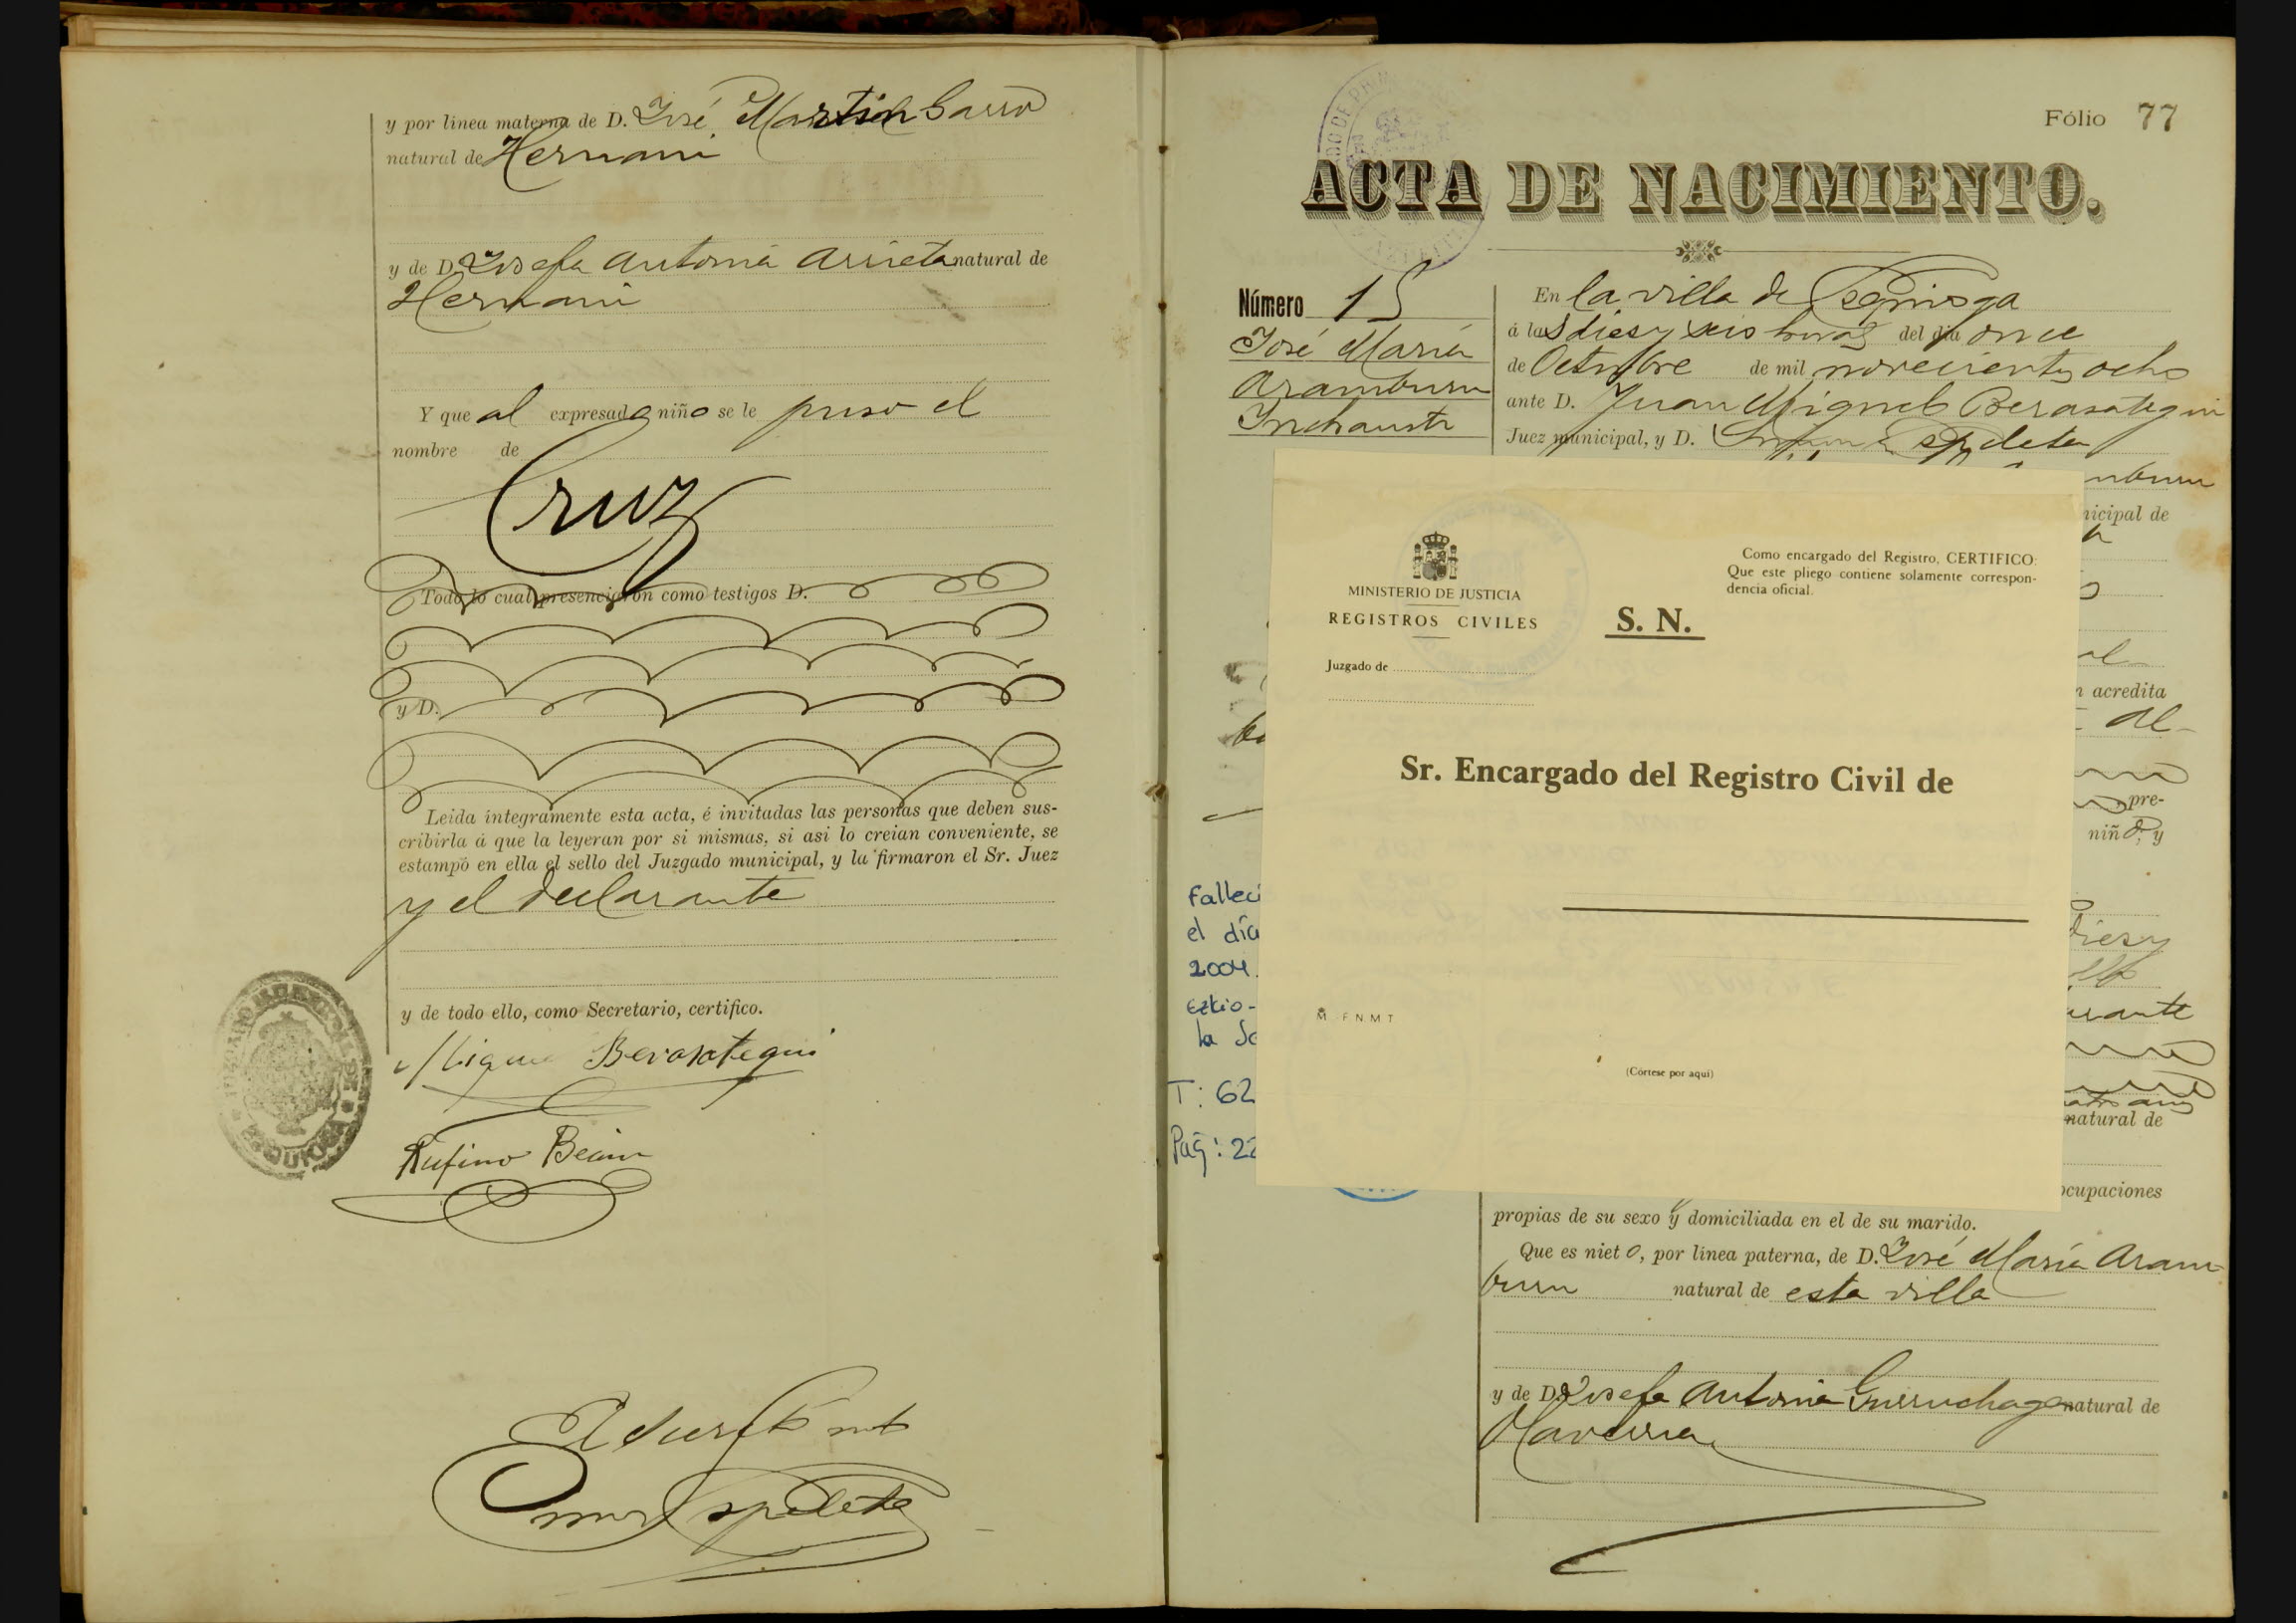 y por línea materna de D. José Martin Garro
natural de Hernani
y de D.ª Josefa Antonia Arrieta natural de
Hernani
Y que al expresado niño se le puso el
nombre de
Cruz
Todo lo cual presenciaron como testigos D.
y D.
Leida íntegramente esta acta, é invitadas las personas que deben sus-
cribirla á que la leyeran por si mismas, si asi lo creian conveniente, se
estampó en ella el sello del Juzgado municipal, y la firmaron el Sr. Juez
y el declarante
y de todo ello, como Secretario, certifico.
Miguel Berasategui
Rufino Beain
Espeleta
Fólio 77
ACTA DE NACIMIENTO.
Número 15
José María
Aramburu
Inchausti
En la villa de Ezquioga
á las dies y seis horas del dia once
de Octubre de mil novecientos ocho
ante D. Juan Miguel Berasategui
Juez municipal, y D. Espeleta
mburu
nicipal de
al
n acredita
al-
pre-
niño, y
diesy
arante
natural de
ocupaciones
propias de su sexo y domiciliada en el de su marido.
Que es nieto, por línea paterna, de D. José María Aram-
buru natural de esta villa
y de D.ª Josefa Antonia Gurruchaga natural de
Falleci
el día
2004.
Ezkio-
la Sc
T: 62
Pag: 22
MINISTERIO DE JUSTICIA
REGISTROS CIVILES
Juzgado de
S. N.
Como encargado del Registro, CERTIFICO:
Que este pliego contiene solamente correspon-
dencia oficial.
Sr. Encargado del Registro Civil de
F N M T
(Córtese por aquí)